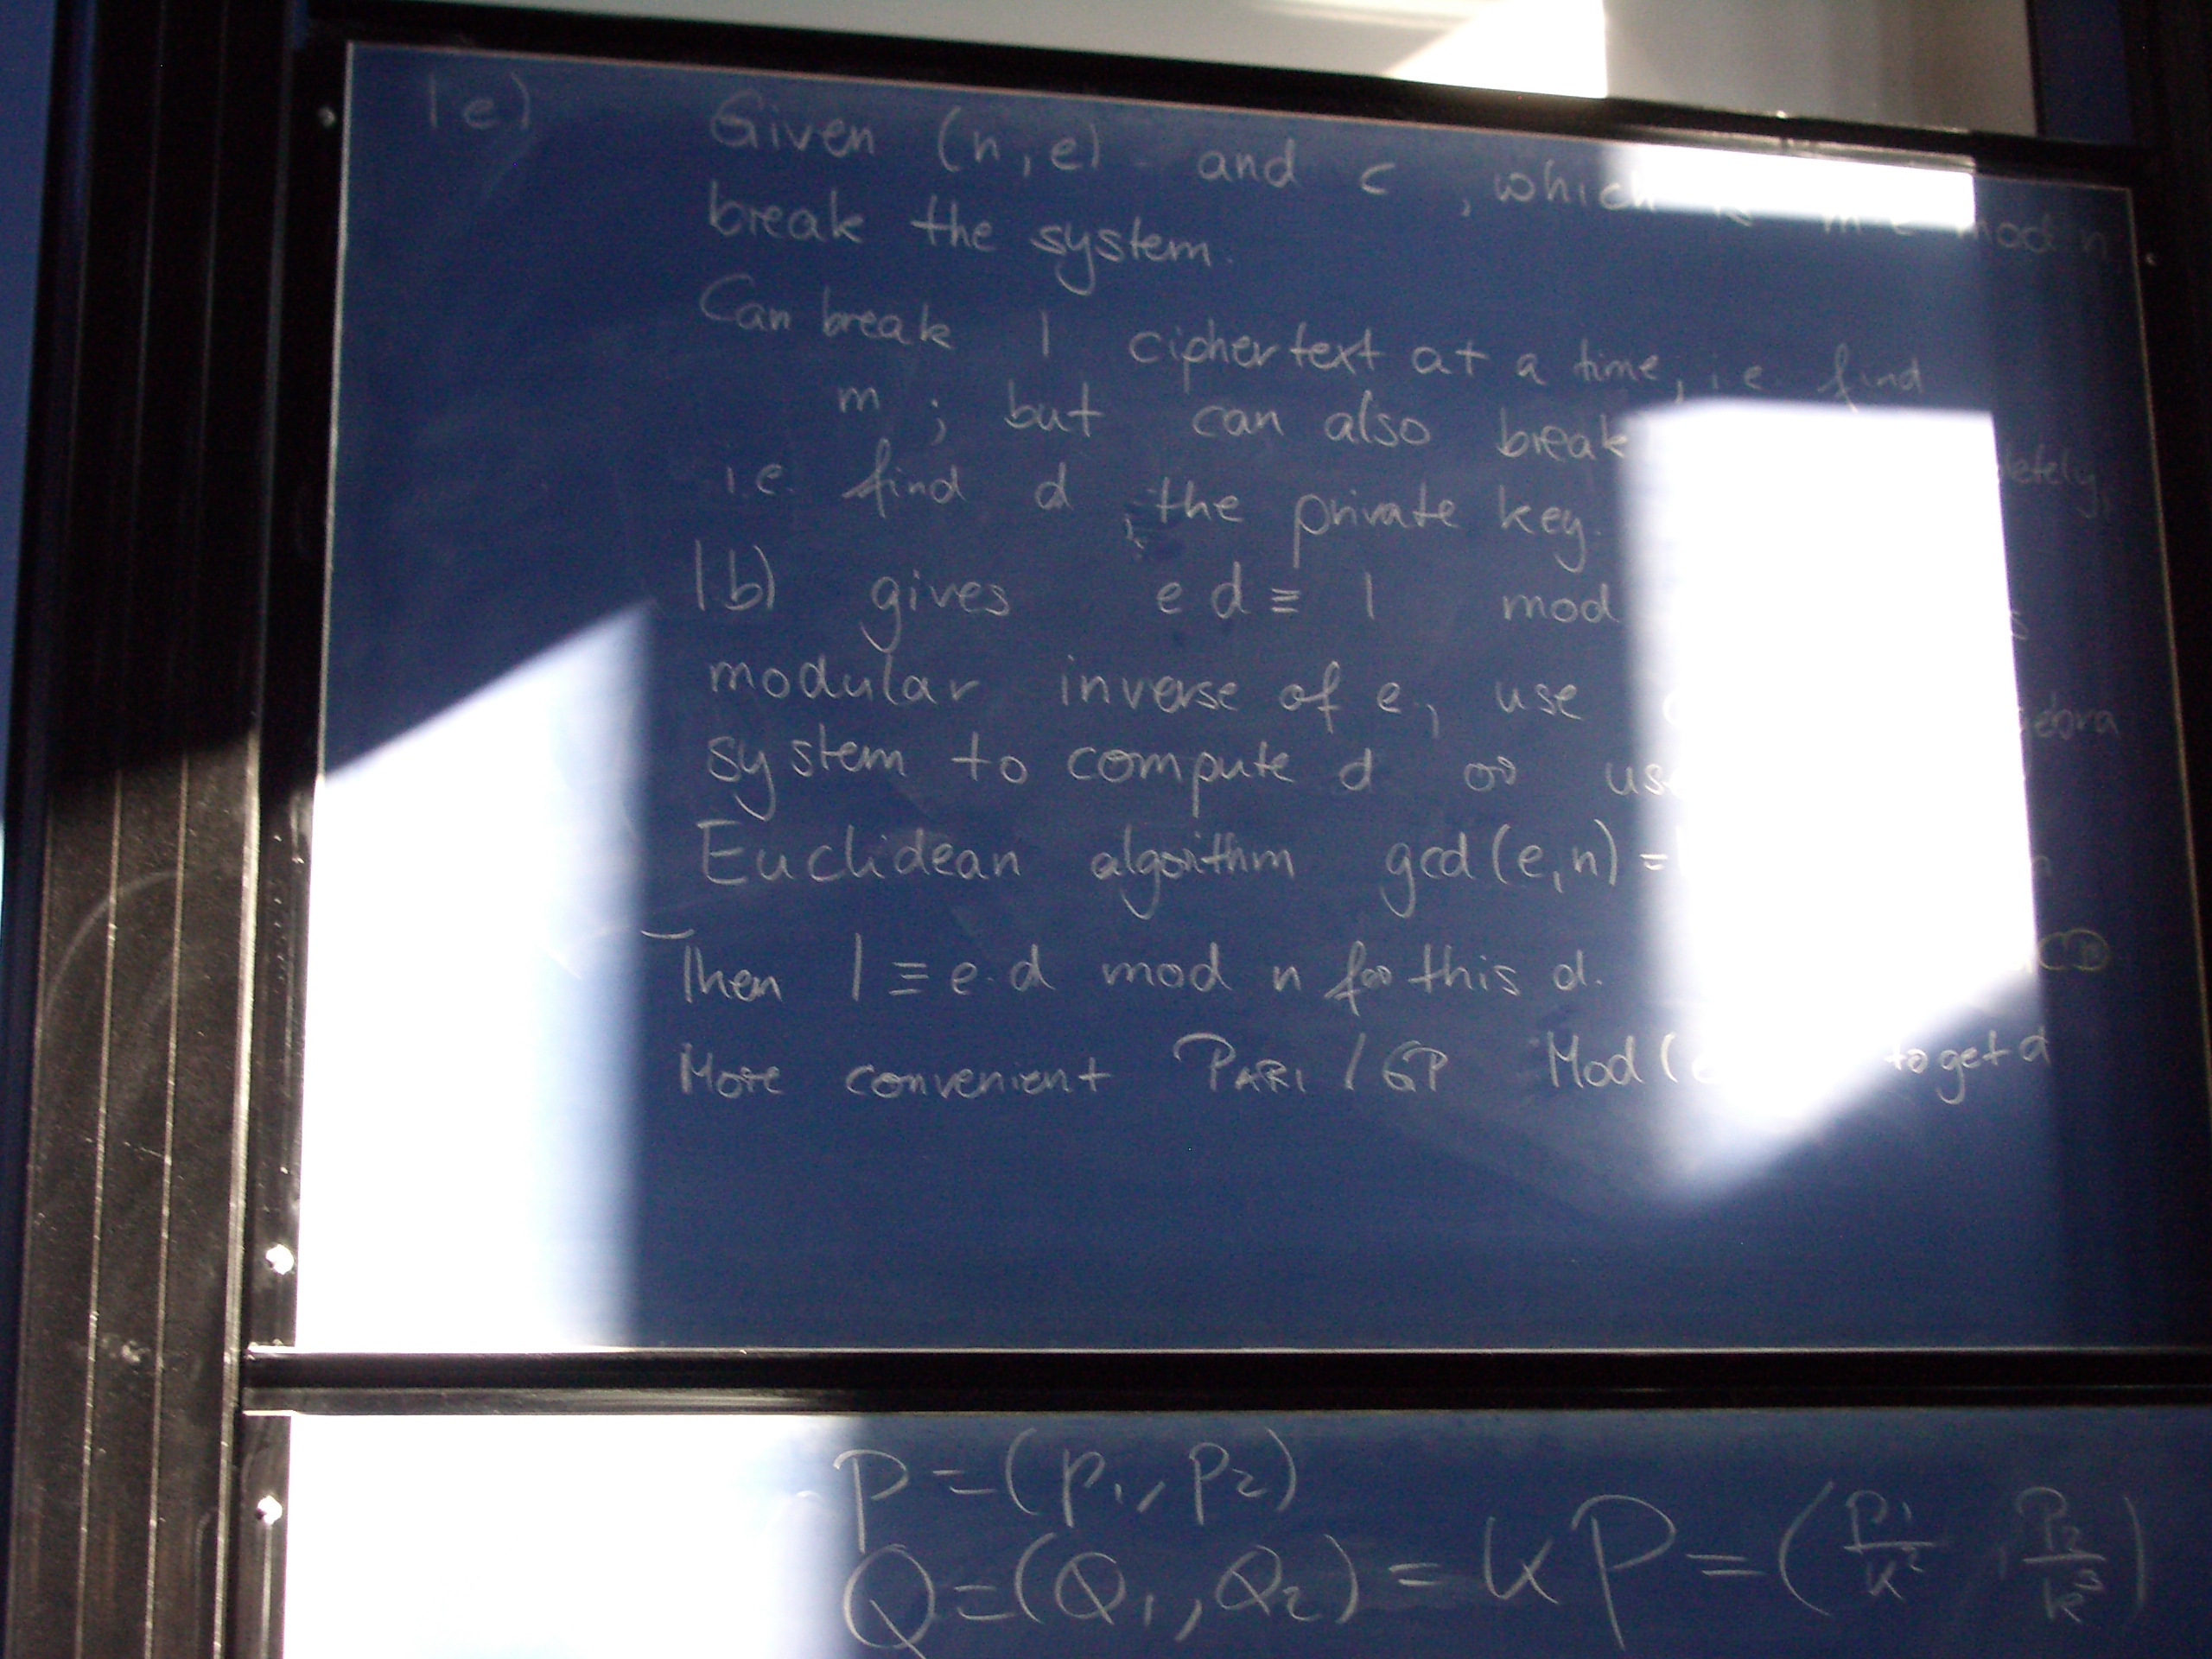 1e) Given (n,e) and c, which is m e mod n,
break the system.
Can break 1 ciphertext at a time, i.e. find
m ; but can also break
i.e. find d, the private key.
1.b) gives e d ≡ 1 mod
modular inverse of e, use
system to compute d or use
Euclidean algorithm gcd(e,n) =
Then 1 ≡ e·d mod n for this d.
More convenient PARI/GP Mod(e to get d
P=(p₁,p₂)
Q=(Q₁,Q₂)=kP=(p₁/k²,p₂/k³)